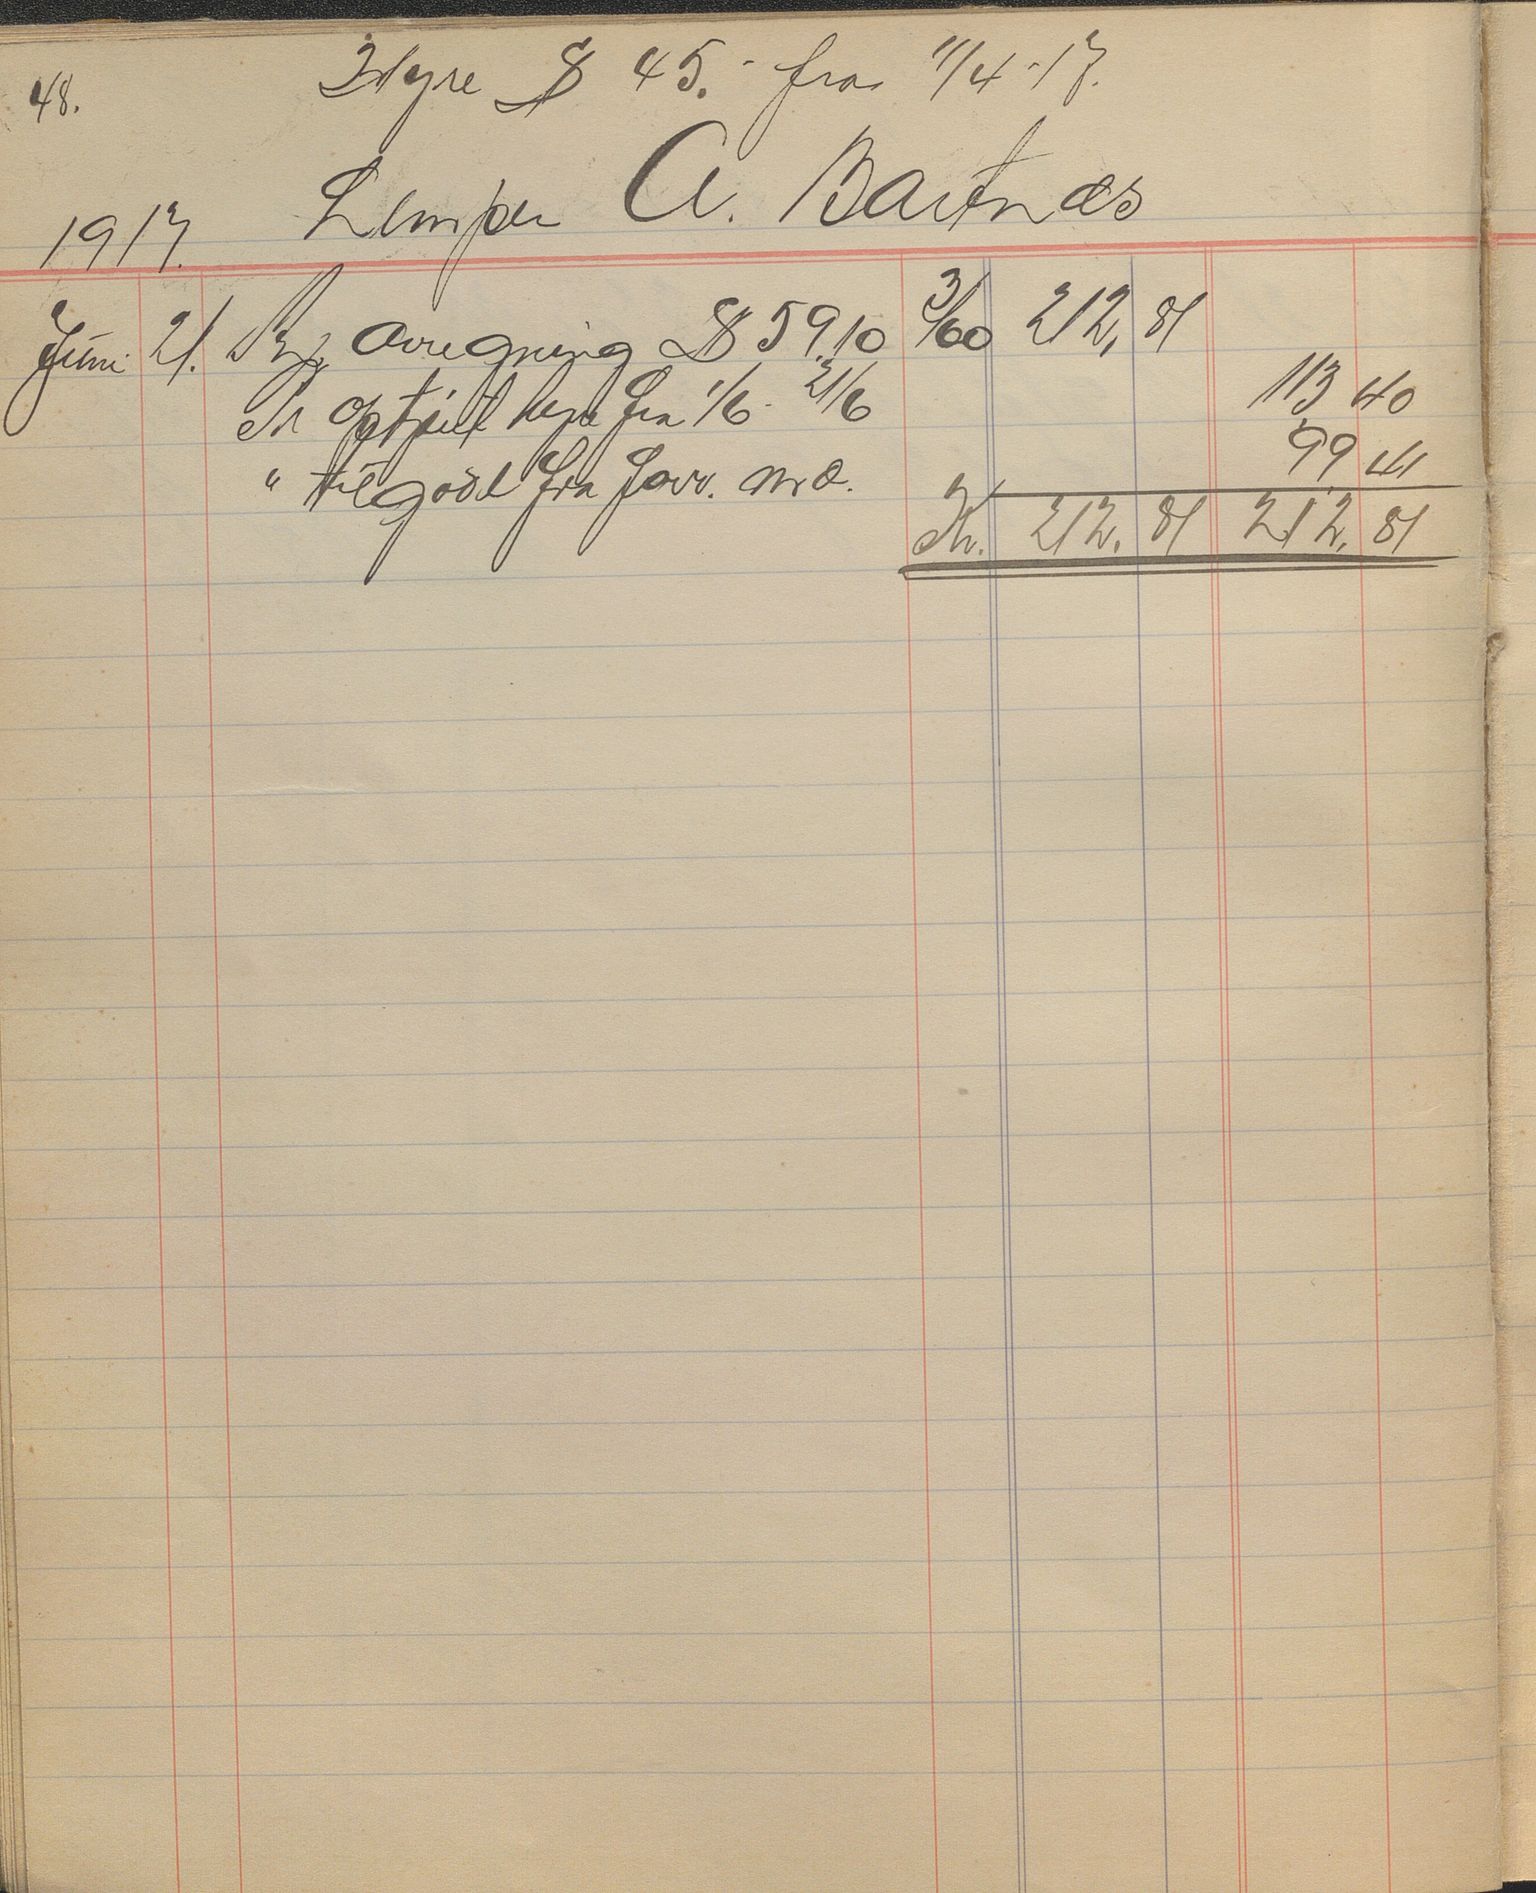 48.
Hyre $ 45.- fra 11/4-17.
Lemper A. Bartnæs
1917.
Juni 21. Pr avregning $ 59,10 3/60 212, 81
Pr optjent hyre fra 1/6 - 21/6 113 40
" tilgode fra forr. md. 99 41
Kr. 212, 81 212, 81